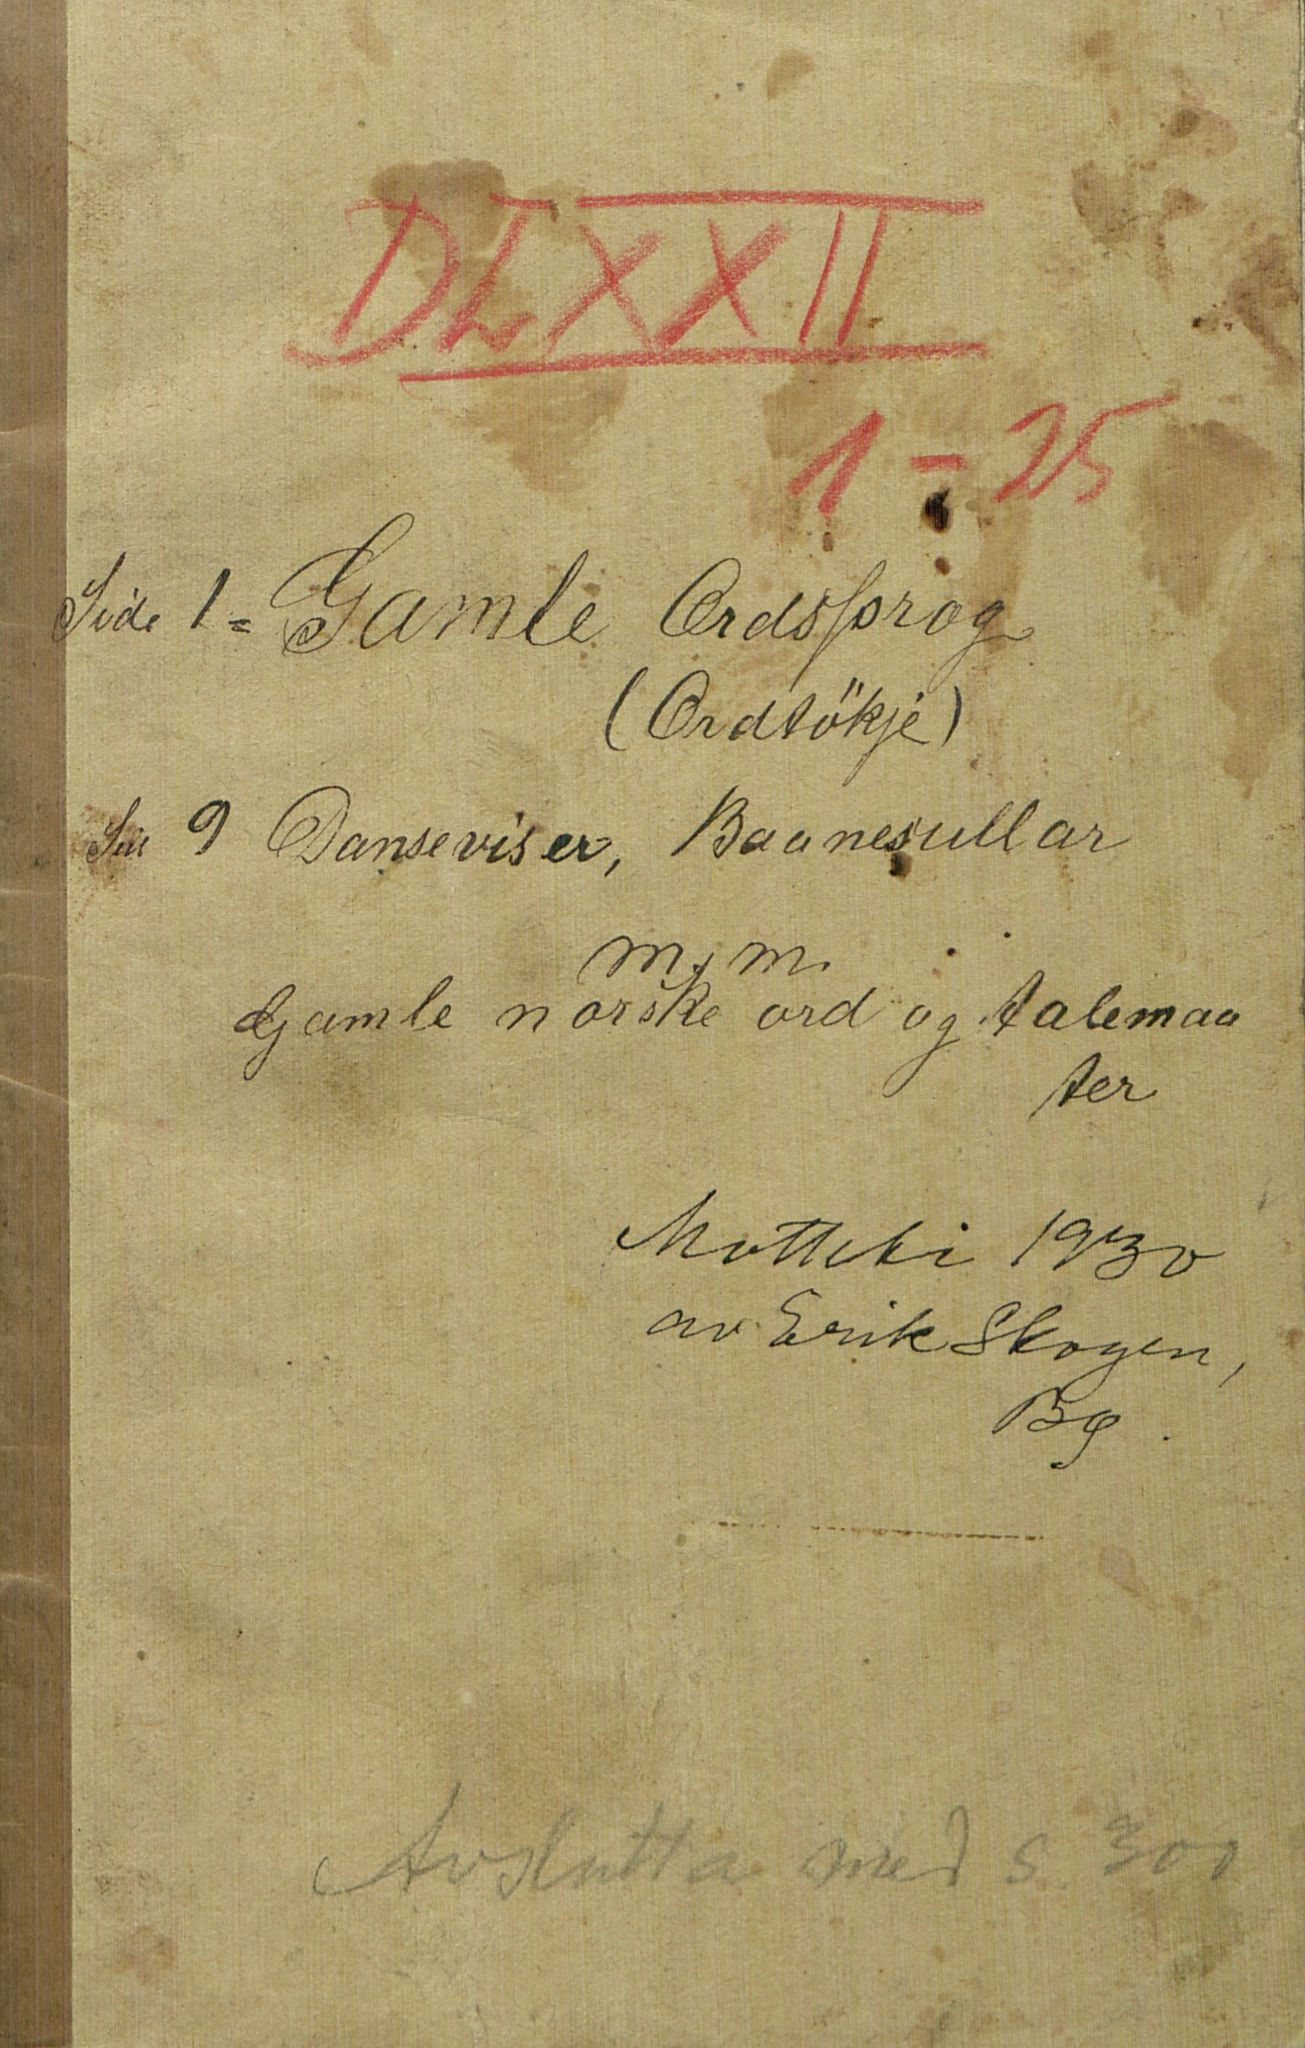 DLXXII
1 - 25
Side 1 = Gamle Ordsprog
(Ordtökje)
9 Danseviser, Baanesullar
m. m.
Gamle norske ord og talemaa
ter
Motteke 1930
av Erik Skogen,
Bø.
Avslutta med s. 300